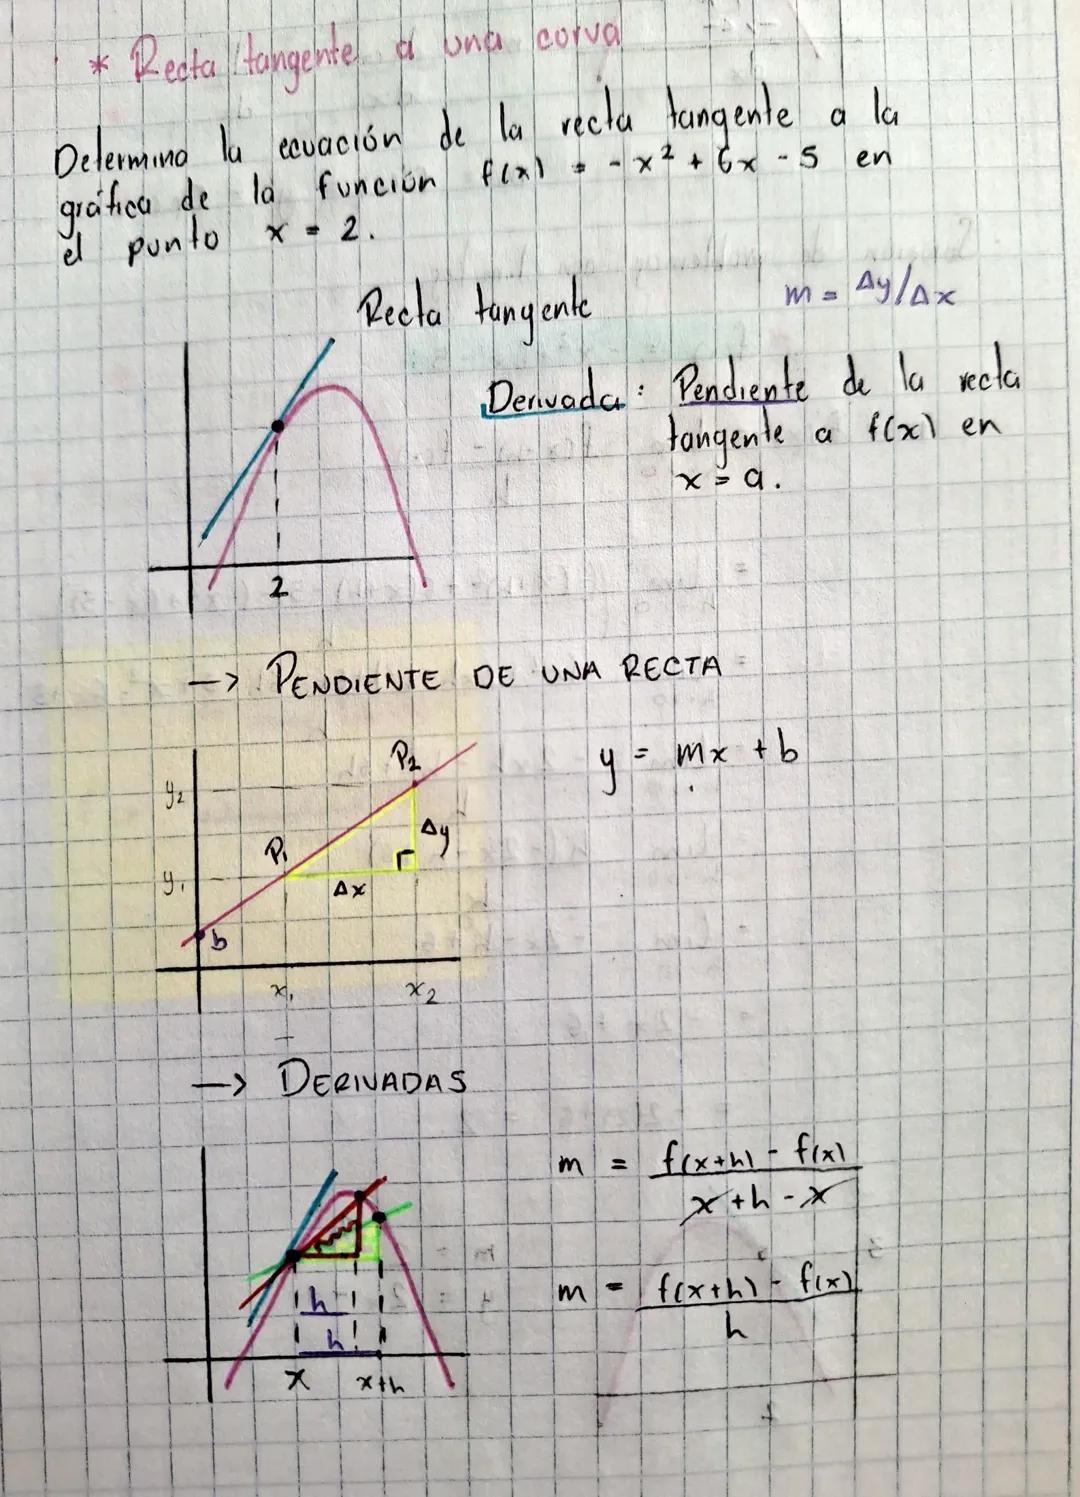 * Recta tangente a una corva
Determino la ecuación de la recta tangente a la
gráfica de la función f(x) = -x² + 6x - 5 en
el punto x = 2.
Recta tangente
m = Δy/Δx
Derivada: Pendiente de la recta
tangente a f(x) en
x = a.
2
-> PENDIENTE DE UNA RECTA
y = mx + b
P2
y2
Δy
P1
y1
Δx
b
x1 x2
-> DERIVADAS
m = f(x+h) - f(x)
x + h - x
m = f(x+h) - f(x)
h
h
h
x x+h